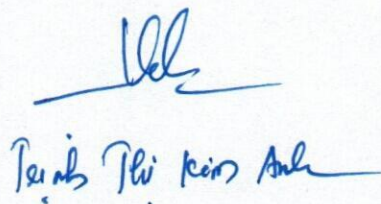 Trinh Thi Kim Anh